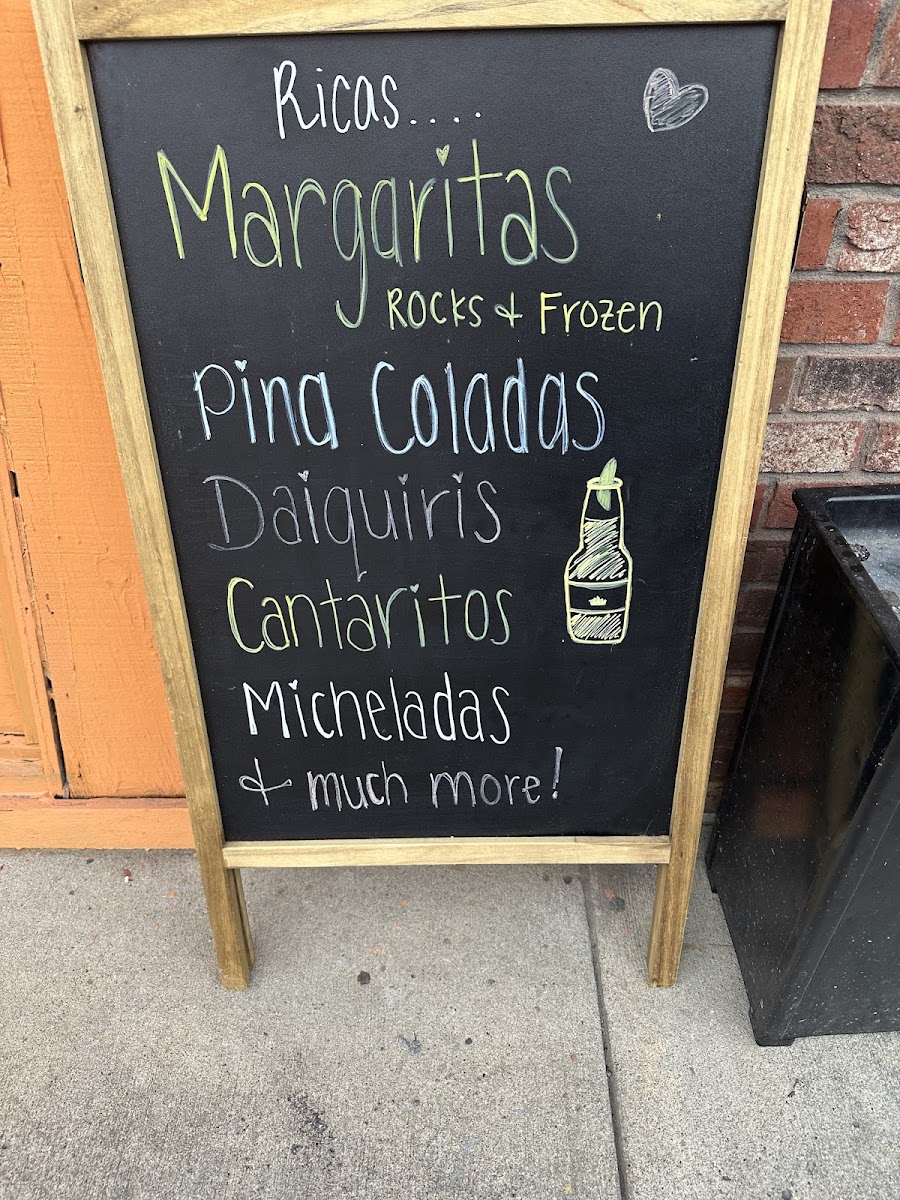 Ricas....
Margaritas
Rocks & Frozen
Pina Coladas
Daiquiris
Cantaritos
Micheladas
& much more!